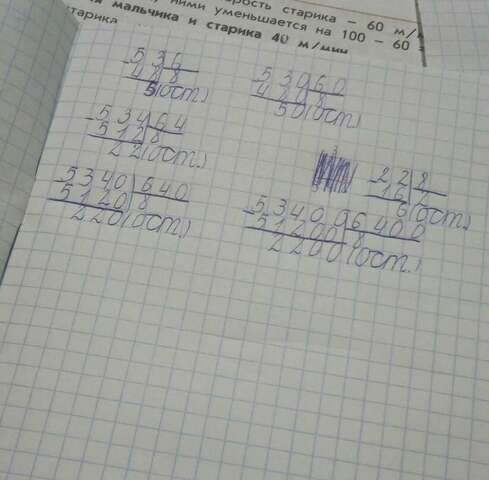 рость старика – 60 м/
ними уменьшается на 100 – 60
мальчика и старика 40 м/мин
старика
53 6
48 8
5(ост.)
530 60
480 8
50(ост.)
534 64
512 8
22(ост.)
22 8
16
6(ост.)
5340 640
5120 8
220(ост.)
53400 6400
51200 8
2200(ост.)